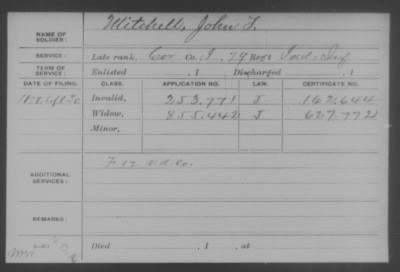 NAME OF SOLDIER: Mitchell, John T.
SERVICE: Late rank, Cor Co. I, 79 Reg't Ind. Inf
TERM OF SERVICE: Enlisted , 1 Discharged , 1
DATE OF FILING. CLASS. APPLICATION NO. LAW. CERTIFICATE NO.
Invalid, 253.771 J 162.644
Widow, 855.442 J 627.772
Minor,
ADDITIONAL SERVICES: F 17 V.R.C.
REMARKS:
Died , 1 , at